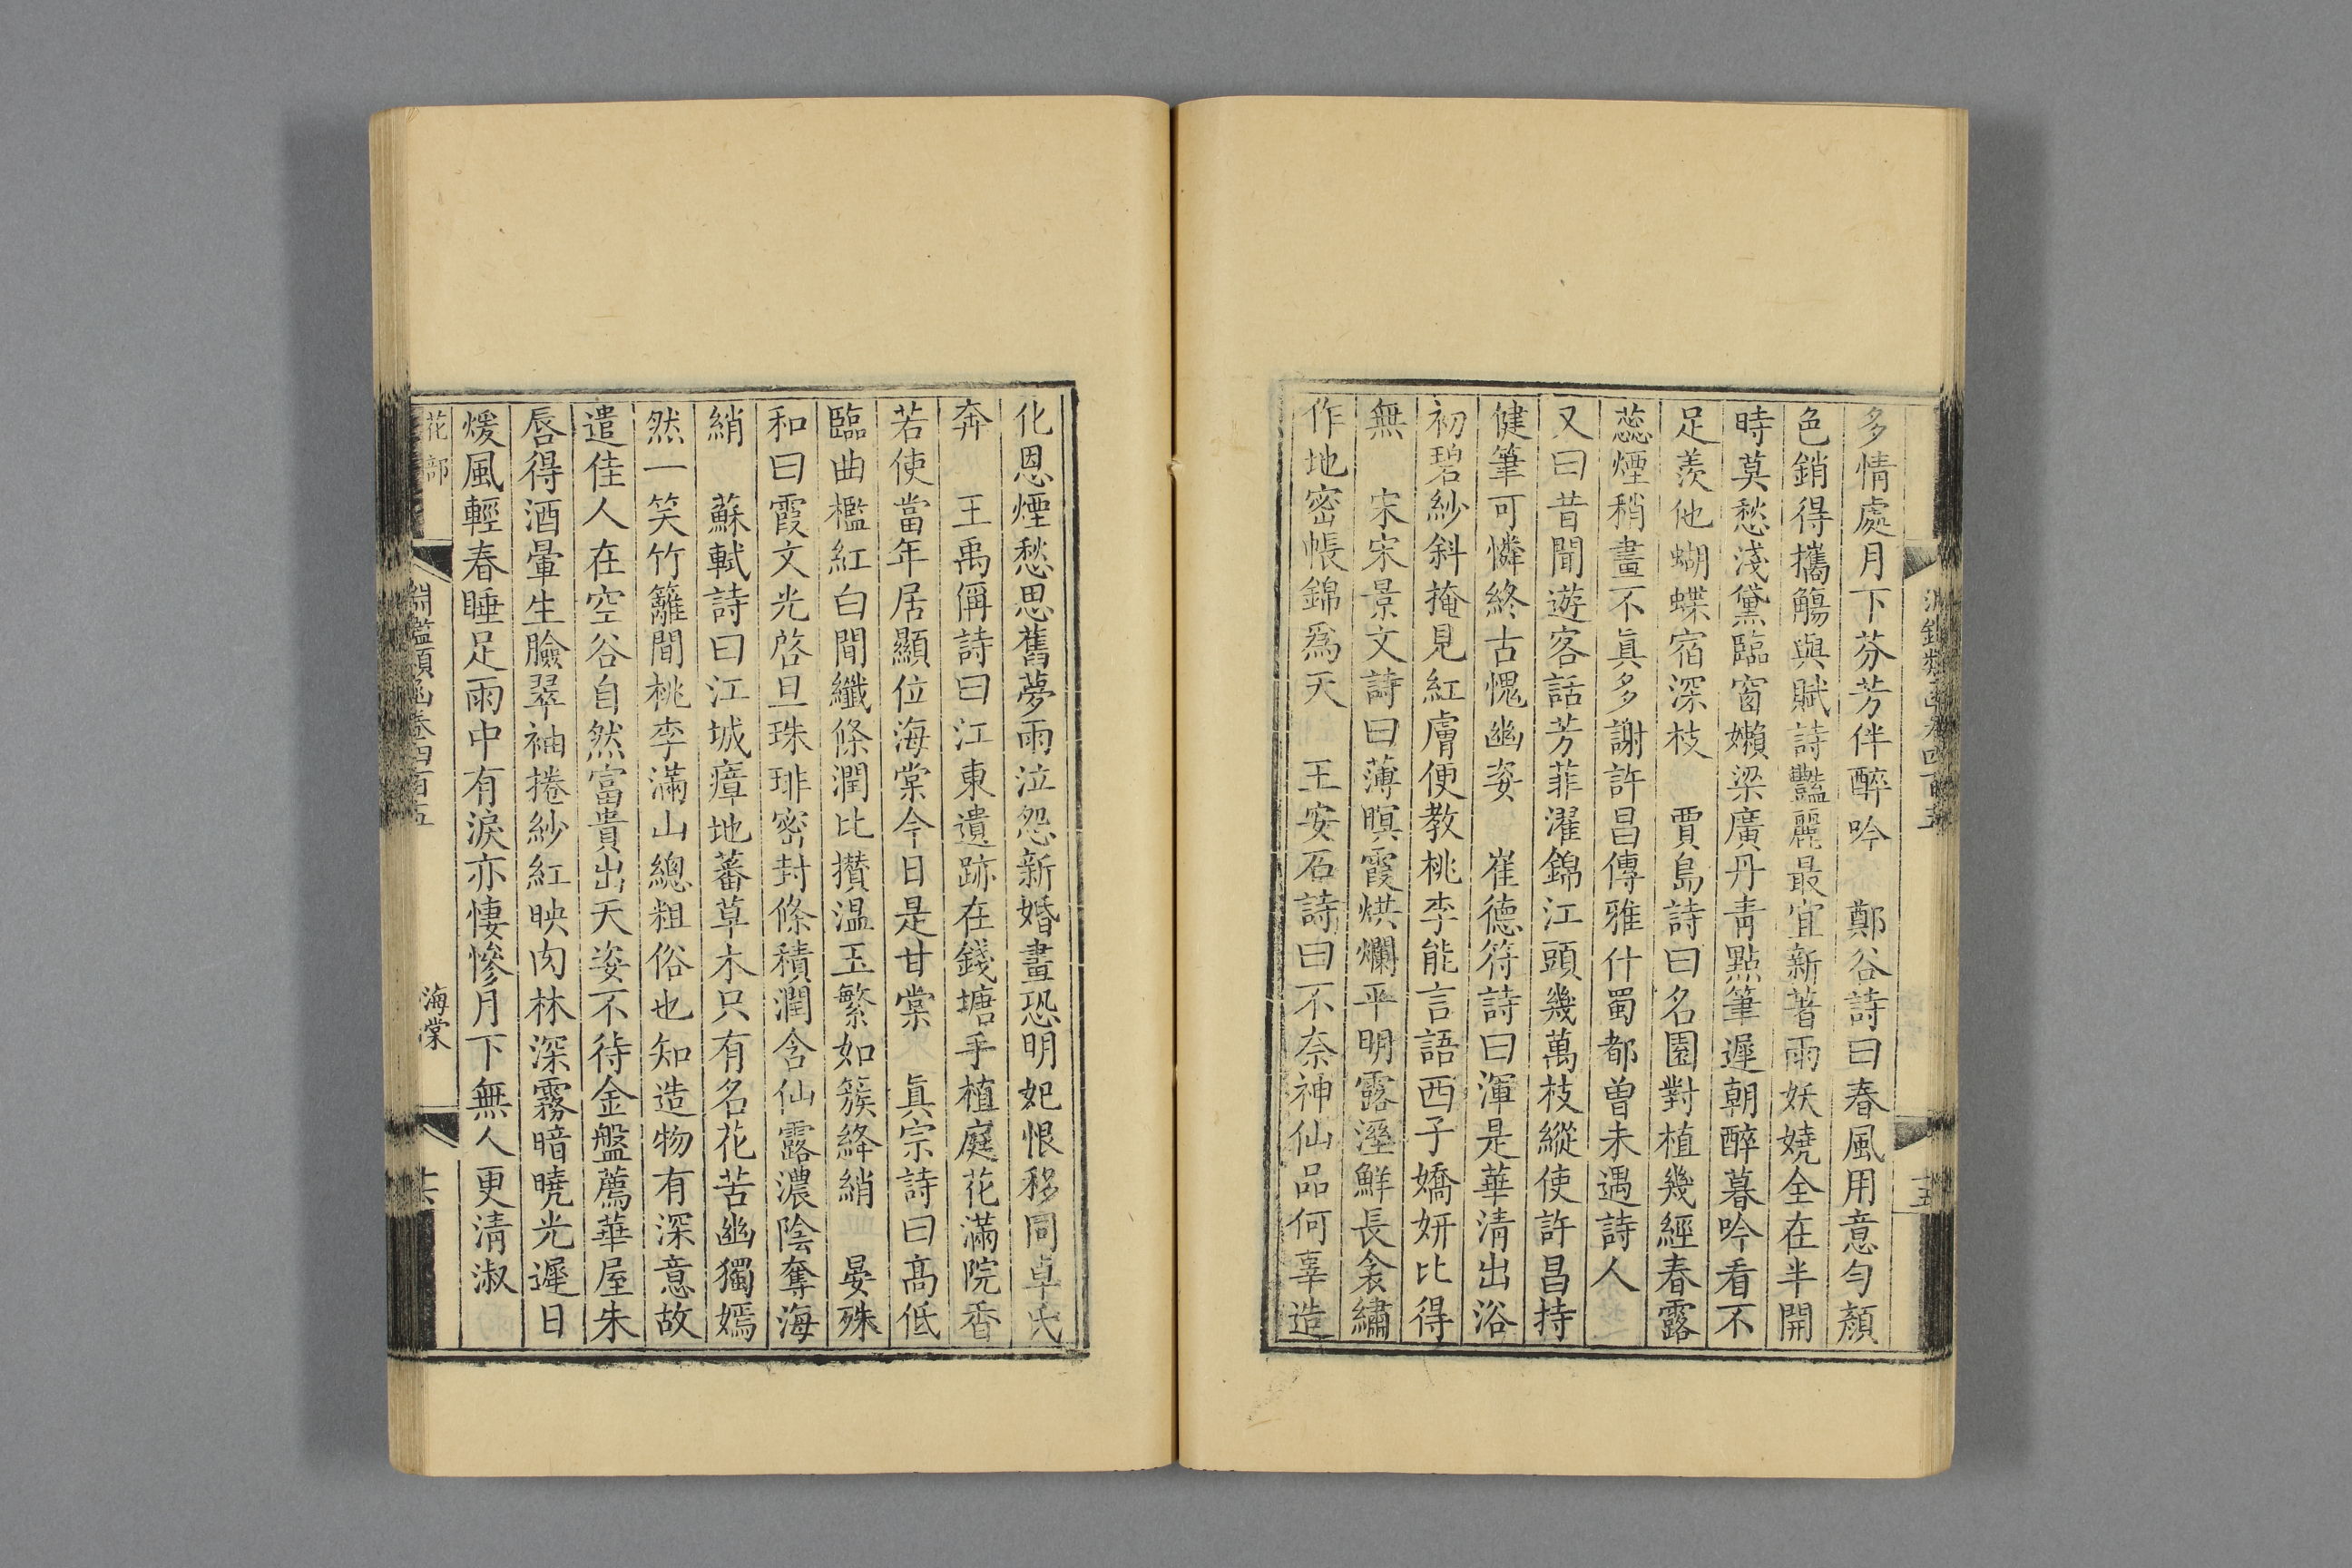 多情處月下芬芳伴醉吟　鄭谷詩曰春風用意勻顏
色銷得攜觴與賦詩豔麗最宜新著雨妖嬈全在半開
時莫愁淺黛臨窗嬾梁廣丹青點筆遲朝醉暮吟看不
足羨他蝴蝶宿深枝　賈島詩曰名園對植幾經春露
蕊煙稍畫不眞多謝許昌傳雅什蜀都曾未遇詩人
又曰昔聞遊客話芳菲濯錦江頭幾萬枝縱使許昌持
健筆可憐終古愧幽姿　崔德符詩曰渾是華清出浴
初碧紗斜掩見紅膚便教桃李能言語西子嬌妍比得
無　宋宋景文詩曰薄暝霞烘爛平明露溼鮮長衾繡
作地密帳錦爲天　王安石詩曰不奈神仙品何辜造
化恩煙愁思舊夢雨泣怨新婚畫恐明妃恨移同卓氏
奔　王禹偁詩曰江東遺跡在錢塘手植庭花滿院香
若使當年居顯位海棠今日是甘棠　眞宗詩曰高低
臨曲檻紅白間纖條潤比攢温玉繁如簇絳綃　晏殊
和曰霞文光啓旦珠琲密封條積潤含仙露濃陰奪海
綃　蘇軾詩曰江城瘴地蕃草木只有名花苦幽獨嫣
然一笑竹籬間桃李滿山總粗俗也知造物有深意故
遣佳人在空谷自然富貴出天姿不待金盤薦華屋朱
唇得酒暈生臉翠袖捲紗紅映肉林深霧暗曉光遲日
煖風輕春睡足雨中有淚亦悽慘月下無人更清淑
花部
淵鑑類函卷四百五
海棠
十六
淵鑑類函卷四百五
十五